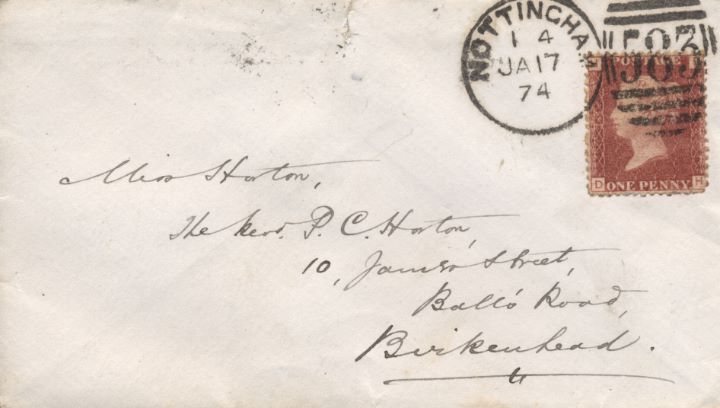 NOTTINGHAM
1 4
JA 17
74
583
D ONE PENNY H
Miss Horton,
The Revd. P. C. Horton,
10, James Street,
Balls Road,
Birkenhead.